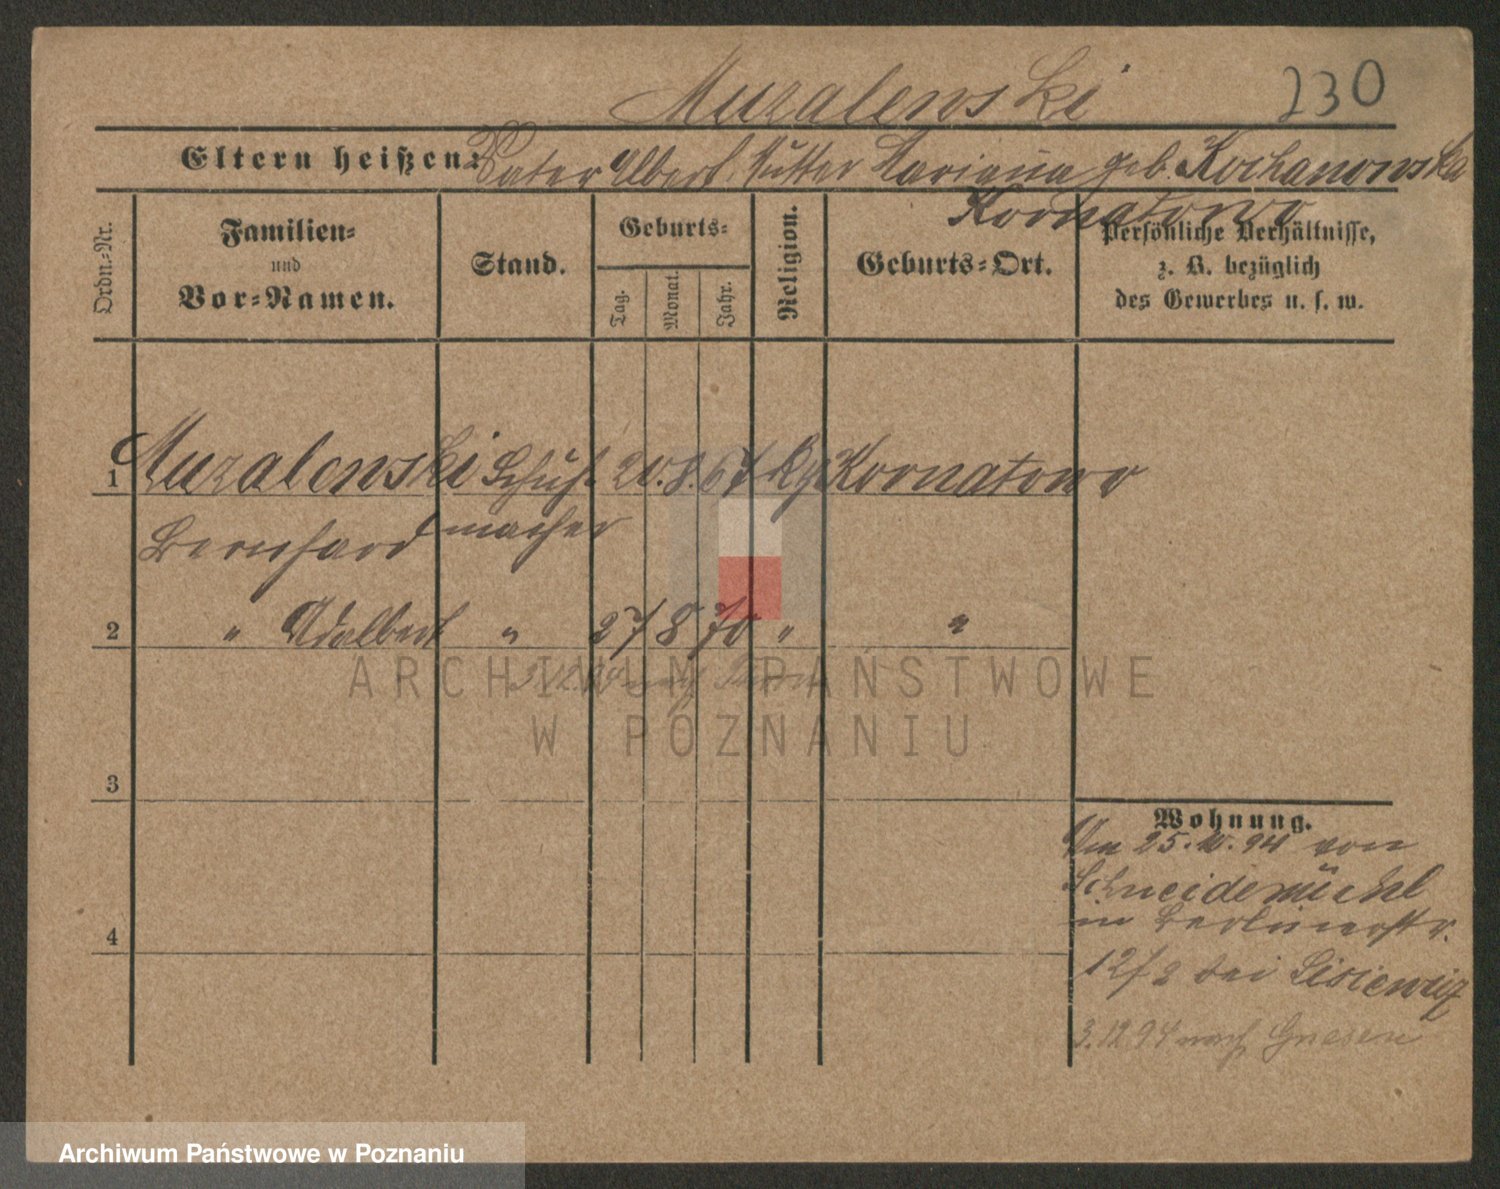 Muzalewski 230
Eltern heißen: Vater Albert Mutter Marianna geb. Kochanowska
Kornatowo
Ordn.-Nr.
Familien-
und
Vor-Namen.
Stand.
Geburts-
Tag.
Monat.
Jahr.
Religion.
Geburts-Ort.
Persönliche Verhältnisse,
z. B. bezüglich
des Gewerbes u. s. w.
1 Muzalewski Schuh- 20. 8. 67 kg Kornatowo
Bernhard macher
2 " Adalbert " 27 8 70 " "
nach
3
Wohnung.
Am 25. 10. 94 von
Schneidemühl
in Berlinerstr.
4
12/2 bei
3.12 94 nach Gnesen
ARCHIWUM PAŃSTWOWE
W POZNANIU
Archiwum Państwowe w Poznaniu